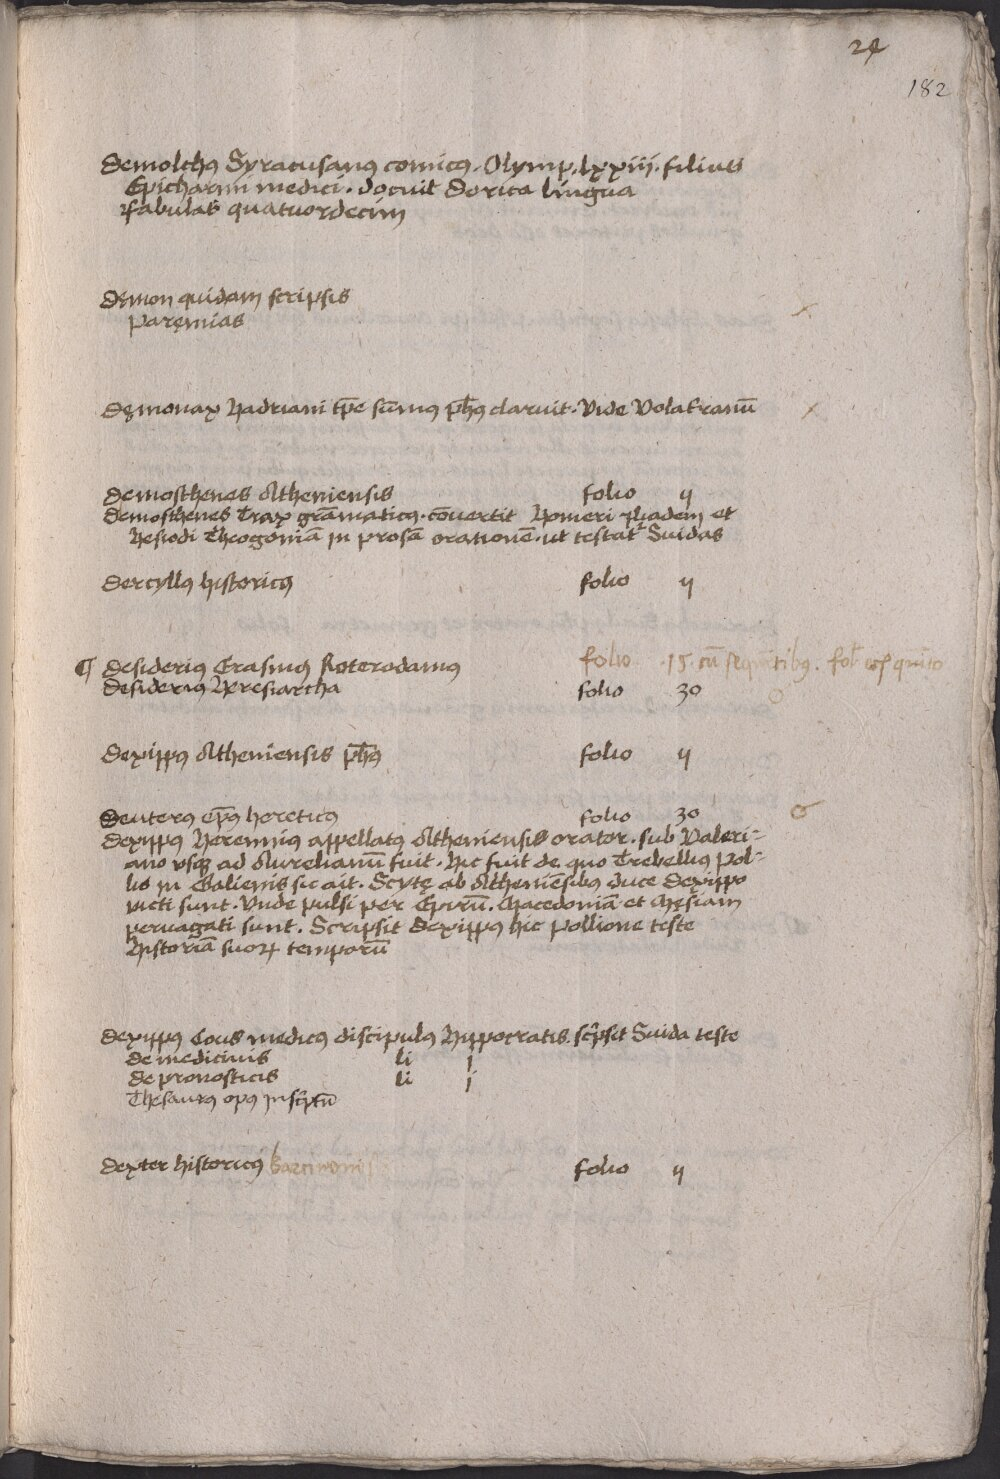 24
182
Demolchꝰ Syracusanꝰ comicꝰ. Olymp. lxxiij. filius
Epicharmi medici. docuit Dorica lingua
fabulas quatuordecim
Dęmon quidam scripsis
Paręmias
Dęmonax Hadriani tp̄e sūmꝰ ph̄ꝰ claruit. Vide Volatranū
Demosthenes Atheniensis folio ij
Demosthenes Trax grāmaticꝰ. cōuertit Homeri Iliadem et
Hesiodi Theogoniā in prosā orationē. ut testatʳ Suidas
Dercyllꝰ historicꝰ folio ij
¶ Desideriꝰ Erasmꝰ Roterodamꝰ folio .15. cū sequētibꝰ.
Desideriꝰ Heresiarcha folio 30
Dexippꝰ Atheniensis ph̄ꝰ folio ij
Deuterꝰ ep̄ꝰ hereticꝰ folio 30
Dexippꝰ Herenniꝰ appellatꝰ Atheniensis orator. sub Valeri=
ano usqꝫ ad Aurelianū fuit. Hic fuit de quo Trebelliꝰ Pol=
lio in Galienis sic ait. Scytę ab Atheniēsibꝰ duce Dexippo
victi sunt. Vnde pulsi per Epirū. Macedoniā et Męsiam
peruagati sunt. Scripsit Dexippꝰ hic Pollione teste
Historiā suoꝝ temporū
Dexippꝰ Cous medicꝰ discipulꝰ Hippocratis. scp̄sit Suida teste
de medicinis li j
de pronosticis li j
Thesaurꝰ opꝰ inscp̄tū
Dexter historicꝰ Barcinonis folio ij